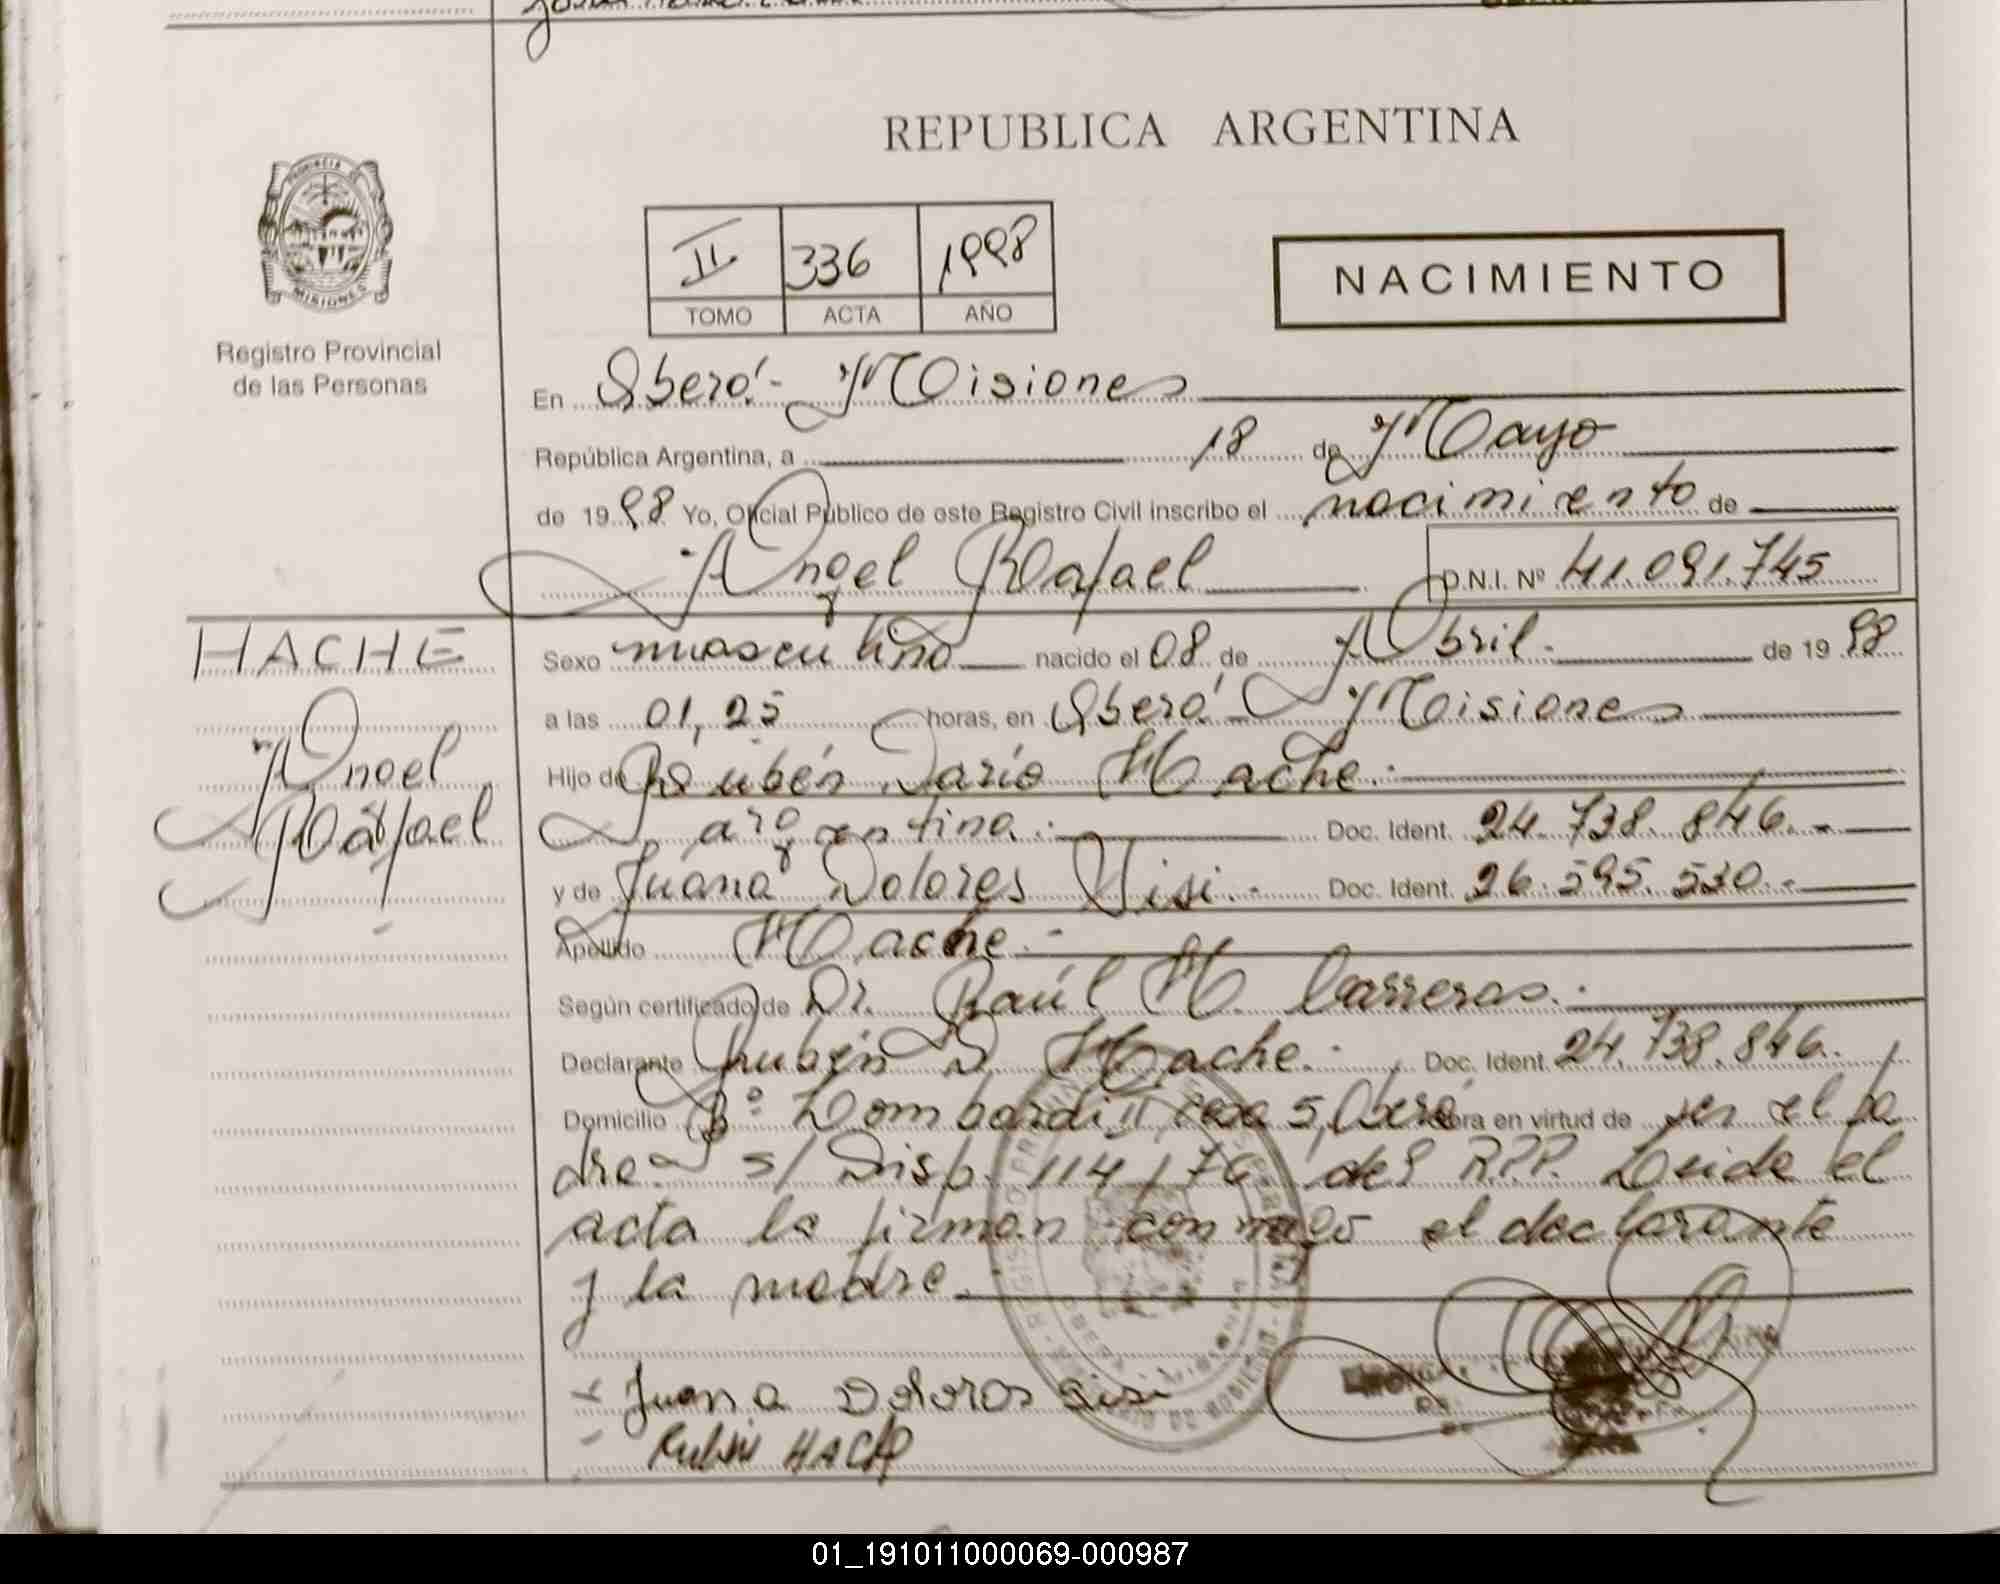 REPUBLICA ARGENTINA
PROVINCIA DE
MISIONES
Registro Provincial
de las Personas
II 336 1998
TOMO ACTA AÑO
NACIMIENTO
En Oberá - Misiones
República Argentina, a 18 de Mayo
de 1998 Yo, Oficial Público de este Registro Civil inscribo el nacimiento de
Angel Rafael D.N.I. Nº 41.091.745
HACHE
Angel
Rafael
Sexo masculino nacido el 08 de Abril.- de 1998
a las 01,25 horas, en Oberá - Misiones
Hijo de Rubén Darío Hache.-
argentino.- Doc. Ident. 24.738.846.-
y de Juana Dolores Sisi.- Doc. Ident. 26.595.530.-
Apellido Hache.-
Según certificado de Dr. Raúl H. Carreras.-
Declarante Rubén D. Hache.- Doc. Ident. 24.738.846.
Domicilio Bº Lombardi II, casa 5, Oberá obra en virtud de ser el pa
dre.- s/ Disp. 114/76 del R.P.P. Leida el
acta la firman conmigo el declarante
y la madre.
Juana Dolores Sisi
Rubén HACHE
01_191011000069-000987